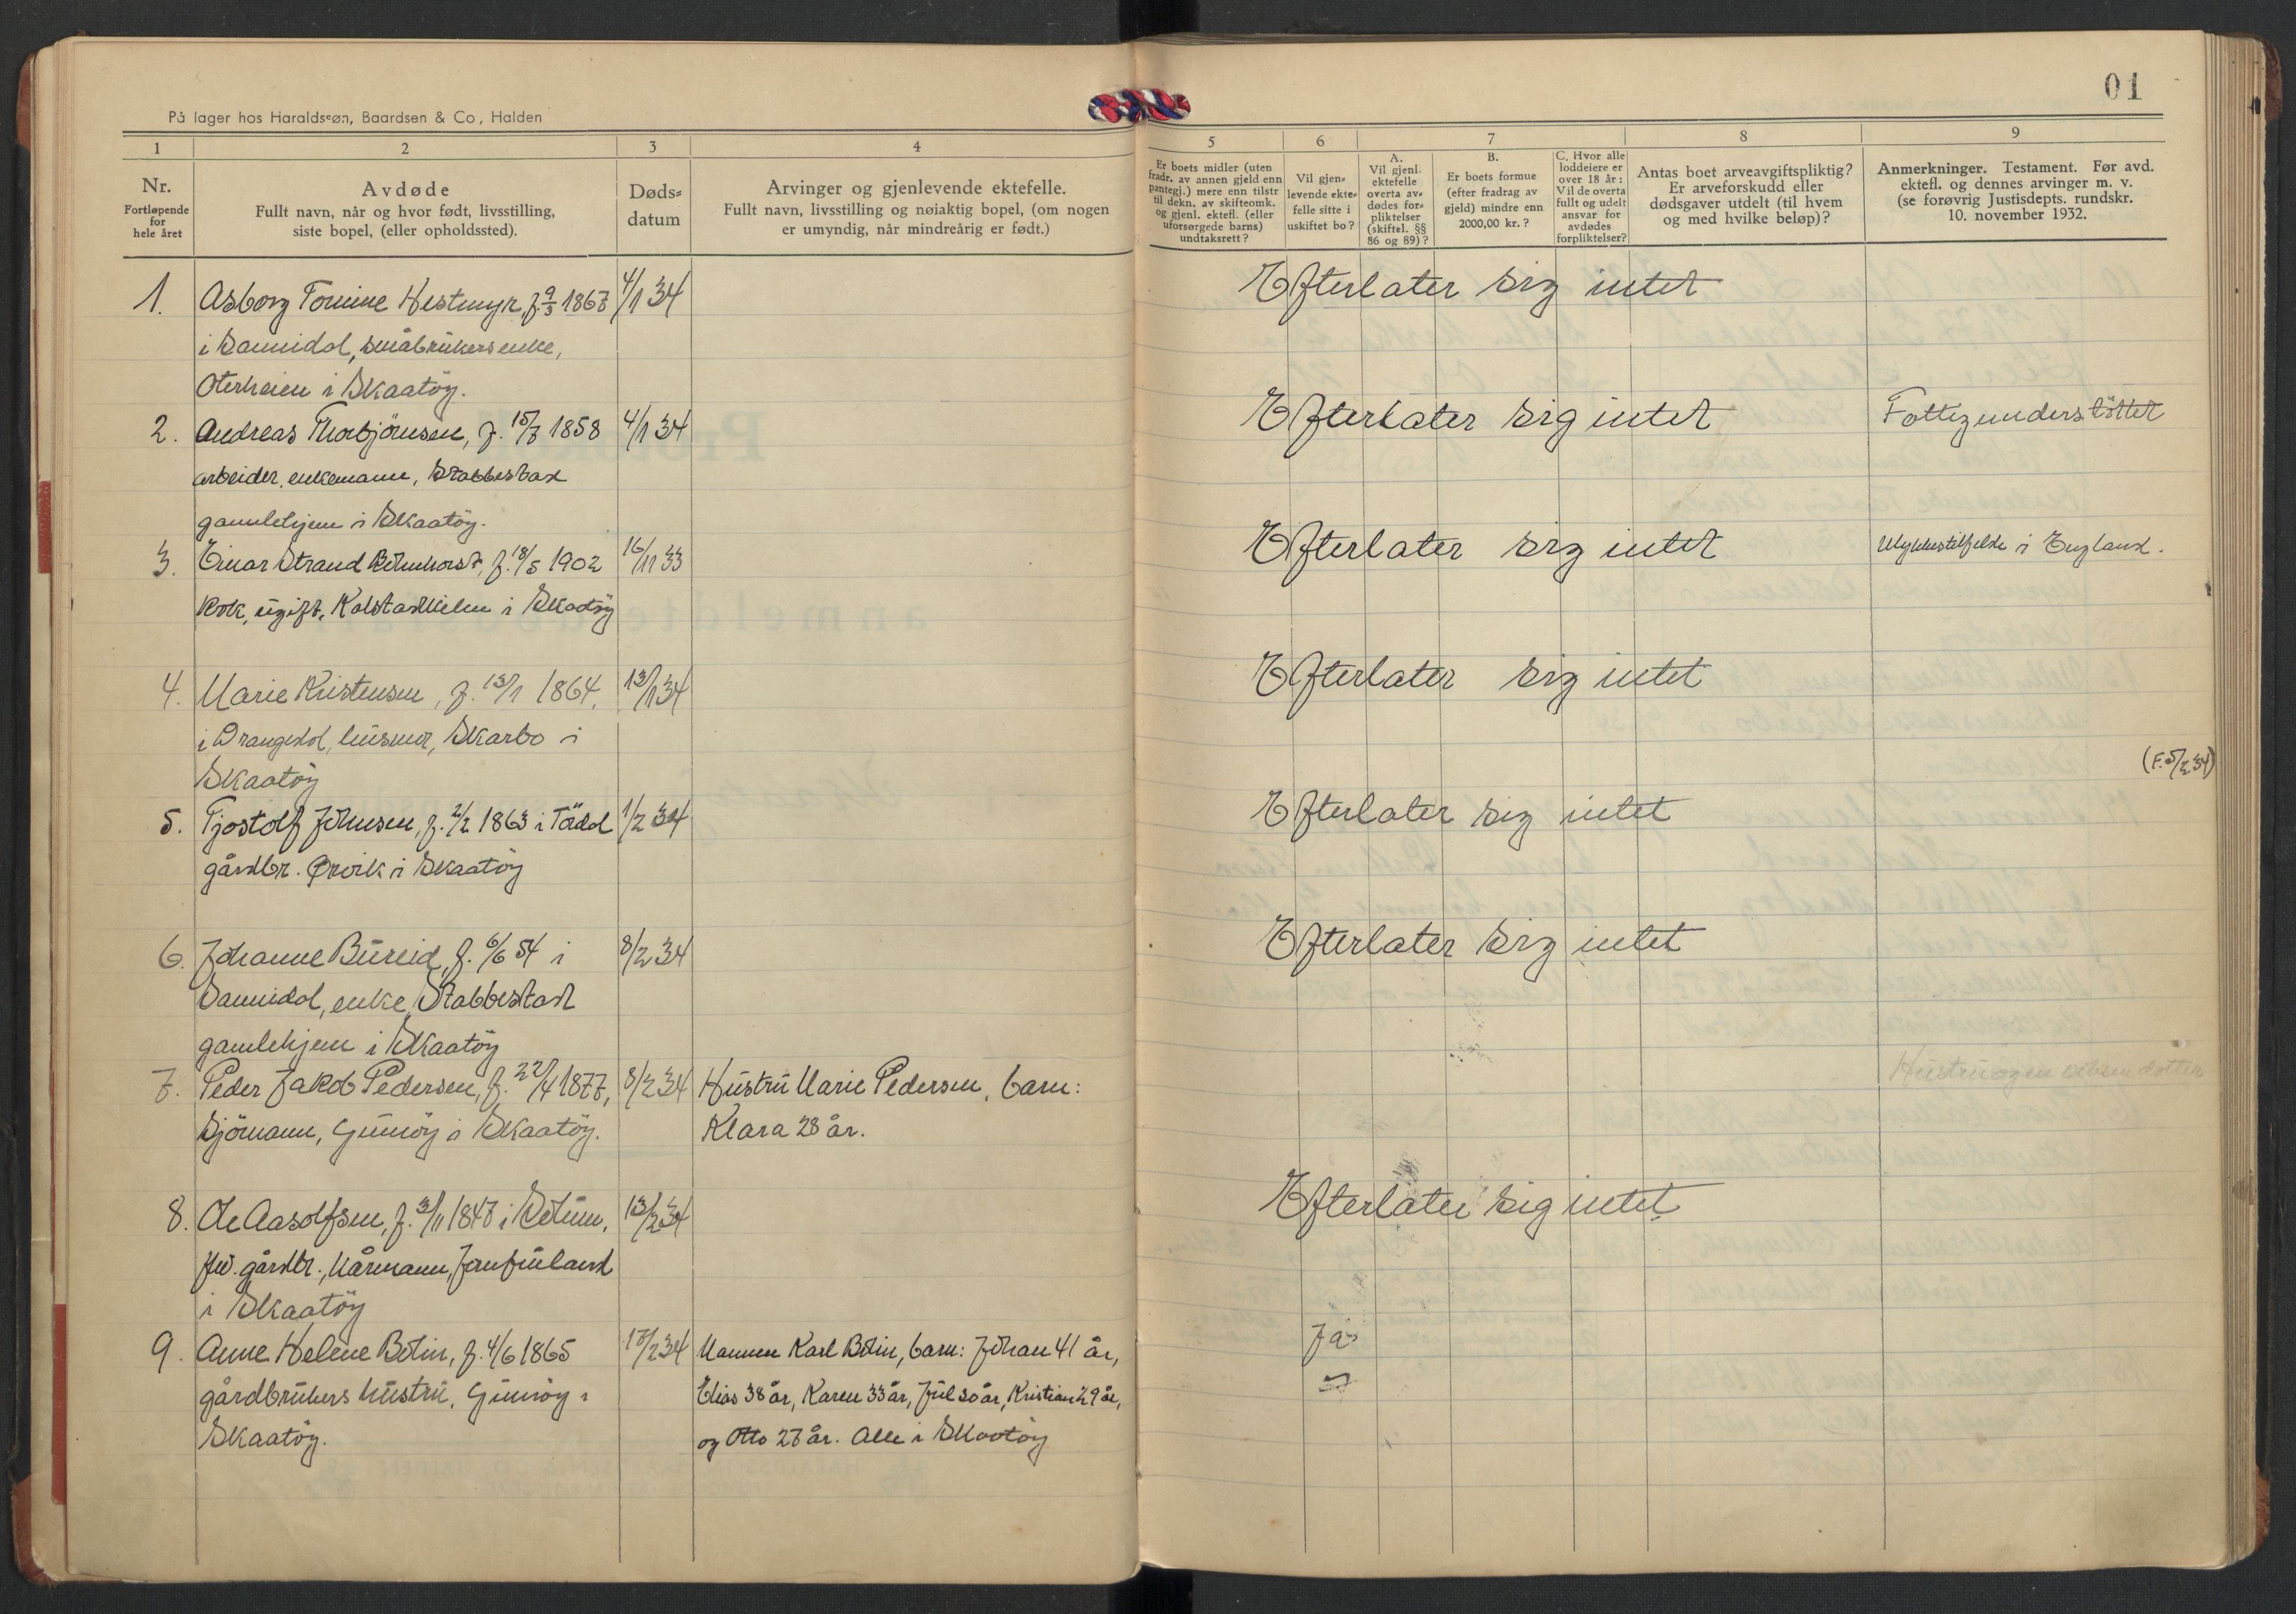 01
På lager hos Haraldssøn, Baardsen & Co, Halden
1 2 3 4 5 6 7 8 9
Nr.
Fortløpende
for
hele året
Avdøde
Fullt navn, når og hvor født, livsstilling,
siste bopel, (eller opholdssted).
Døds-
datum
Arvinger og gjenlevende ektefelle.
Fullt navn, livsstilling og nøiaktig bopel, (om nogen
er umyndig, når mindreårig er født.)
Er boets midler (uten
fradr. av annen gjeld enn
pantegj.) mere enn tilstr
til dekn. av skifteomk.
og gjenl. ektef. (eller
uforsørgede barns)
undtaksrett?
Vil gjen-
levende ekte-
felle sitte i
uskiftet bo?
A.
Vil gjenl.
ektefelle
overta av-
dødes for-
pliktelser
(skiftel. §§
86 og 89)?
B.
Er boets formue
(efter fradrag av
gjeld) mindre enn
2000,00 kr.?
C. Hvor alle
loddeiere er
over 18 år:
Vil de overta
fullt og udelt
ansvar for
avdødes
forpliktelser?
Antas boet arveavgiftspliktig?
Er arveforskudd eller
dødsgaver utdelt (til hvem
og med hvilke beløp)?
Anmerkninger. Testament. Før avd.
ektefl. og dennes arvinger m. v.
(se forøvrig Justisdepts. rundskr.
10. november 1932.
1. Asborg Tomine Hestmyr, f. 9/3 1867 4/1 34 Efterlater sig intet
i Sannidal, småbrukers enke,
Oterheien i Skaatöy.
2. Andreas Thorbjörnsen, f. 15/8 1858 4/1 34 Efterlater sig intet Fattigunderstöttet
arbeider, enkemann, Stabbestad
gamlehjem i Skaatöy.
3. Einar Strand f. 18/5 1902 16/11 33 Efterlater sig intet Ulykkestilfelde i England.
Kok, ugift, Kalstadkilen i Skaatöy
4. Marie Kristensen, f. 13/1 1864, 13/1 34 Efterlater sig intet
i Drangedal, husmor, Skarbo i
Skaatöy
(F. 5/2 34)
5. Tjostolf Johnsen, f. 2/2 1863 i Tördal 1/2 34 Efterlater sig intet
gårdbr. Ørvik i Skaatöy
6. Johanne Bureid, f. 6/6 54 i 8/2 34 Efterlater sig intet
Sannidal, enke, Stabbestad
gamlehjem i Skaatöy
7. Peder Jakob Pedersen, f. 22/4 1877, 8/2 34 Hustru Marie Pedersen, barn:
Sjömann, Gumöy i Skaatöy. Klara 28 år.
8. Ole Aasolfsen, f. 3/11 1847 i Solum, 13/2 34 Efterlater sig intet
fhv. gårdbr., kårmann, Jomfruland
i Skaatöy
9. Anne Helene Bolin, f. 4/6 1865 17/2 34 Mannen Karl Bolin, barn: Johan 41 år, Ja
gårdbrukers hustru, Gumöy i Elias 38 år, Karen 33 år, Jul 30 år, Kristian 29 år,
Skaatöy. og Otto 27 år. Alle i Skaatöy